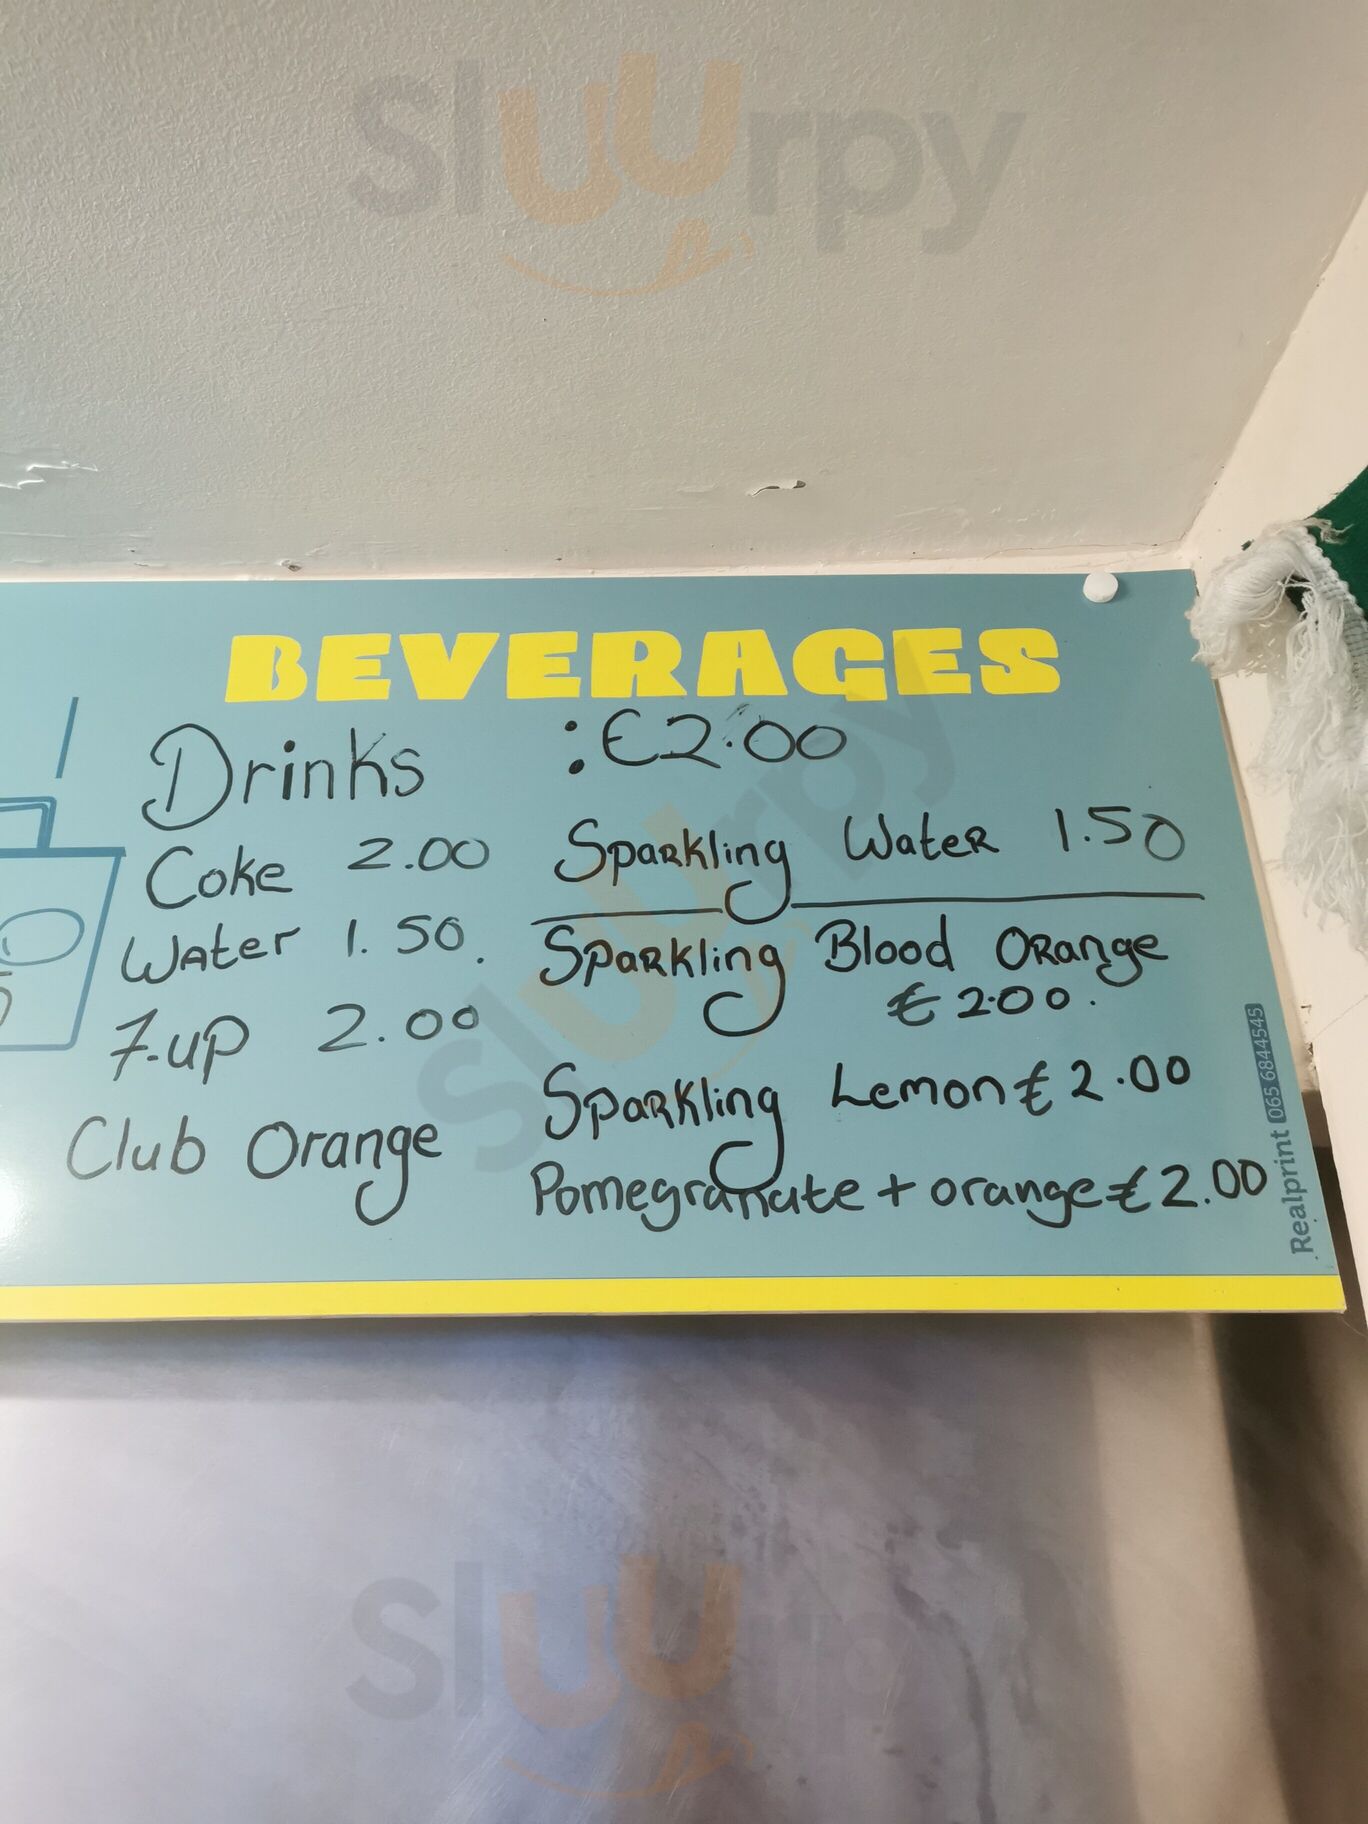 Sluurpy
BEVERAGES
Drinks :€2.00
Coke 2.00
Water 1.50.
7-up 2.00
Club Orange
Sparkling Water 1.50
Sparkling Blood Orange
€2.00.
Sparkling Lemon €2.00
Pomegranate + orange €2.00
Realprint 065 6844545
Sluurpy
Sluurpy